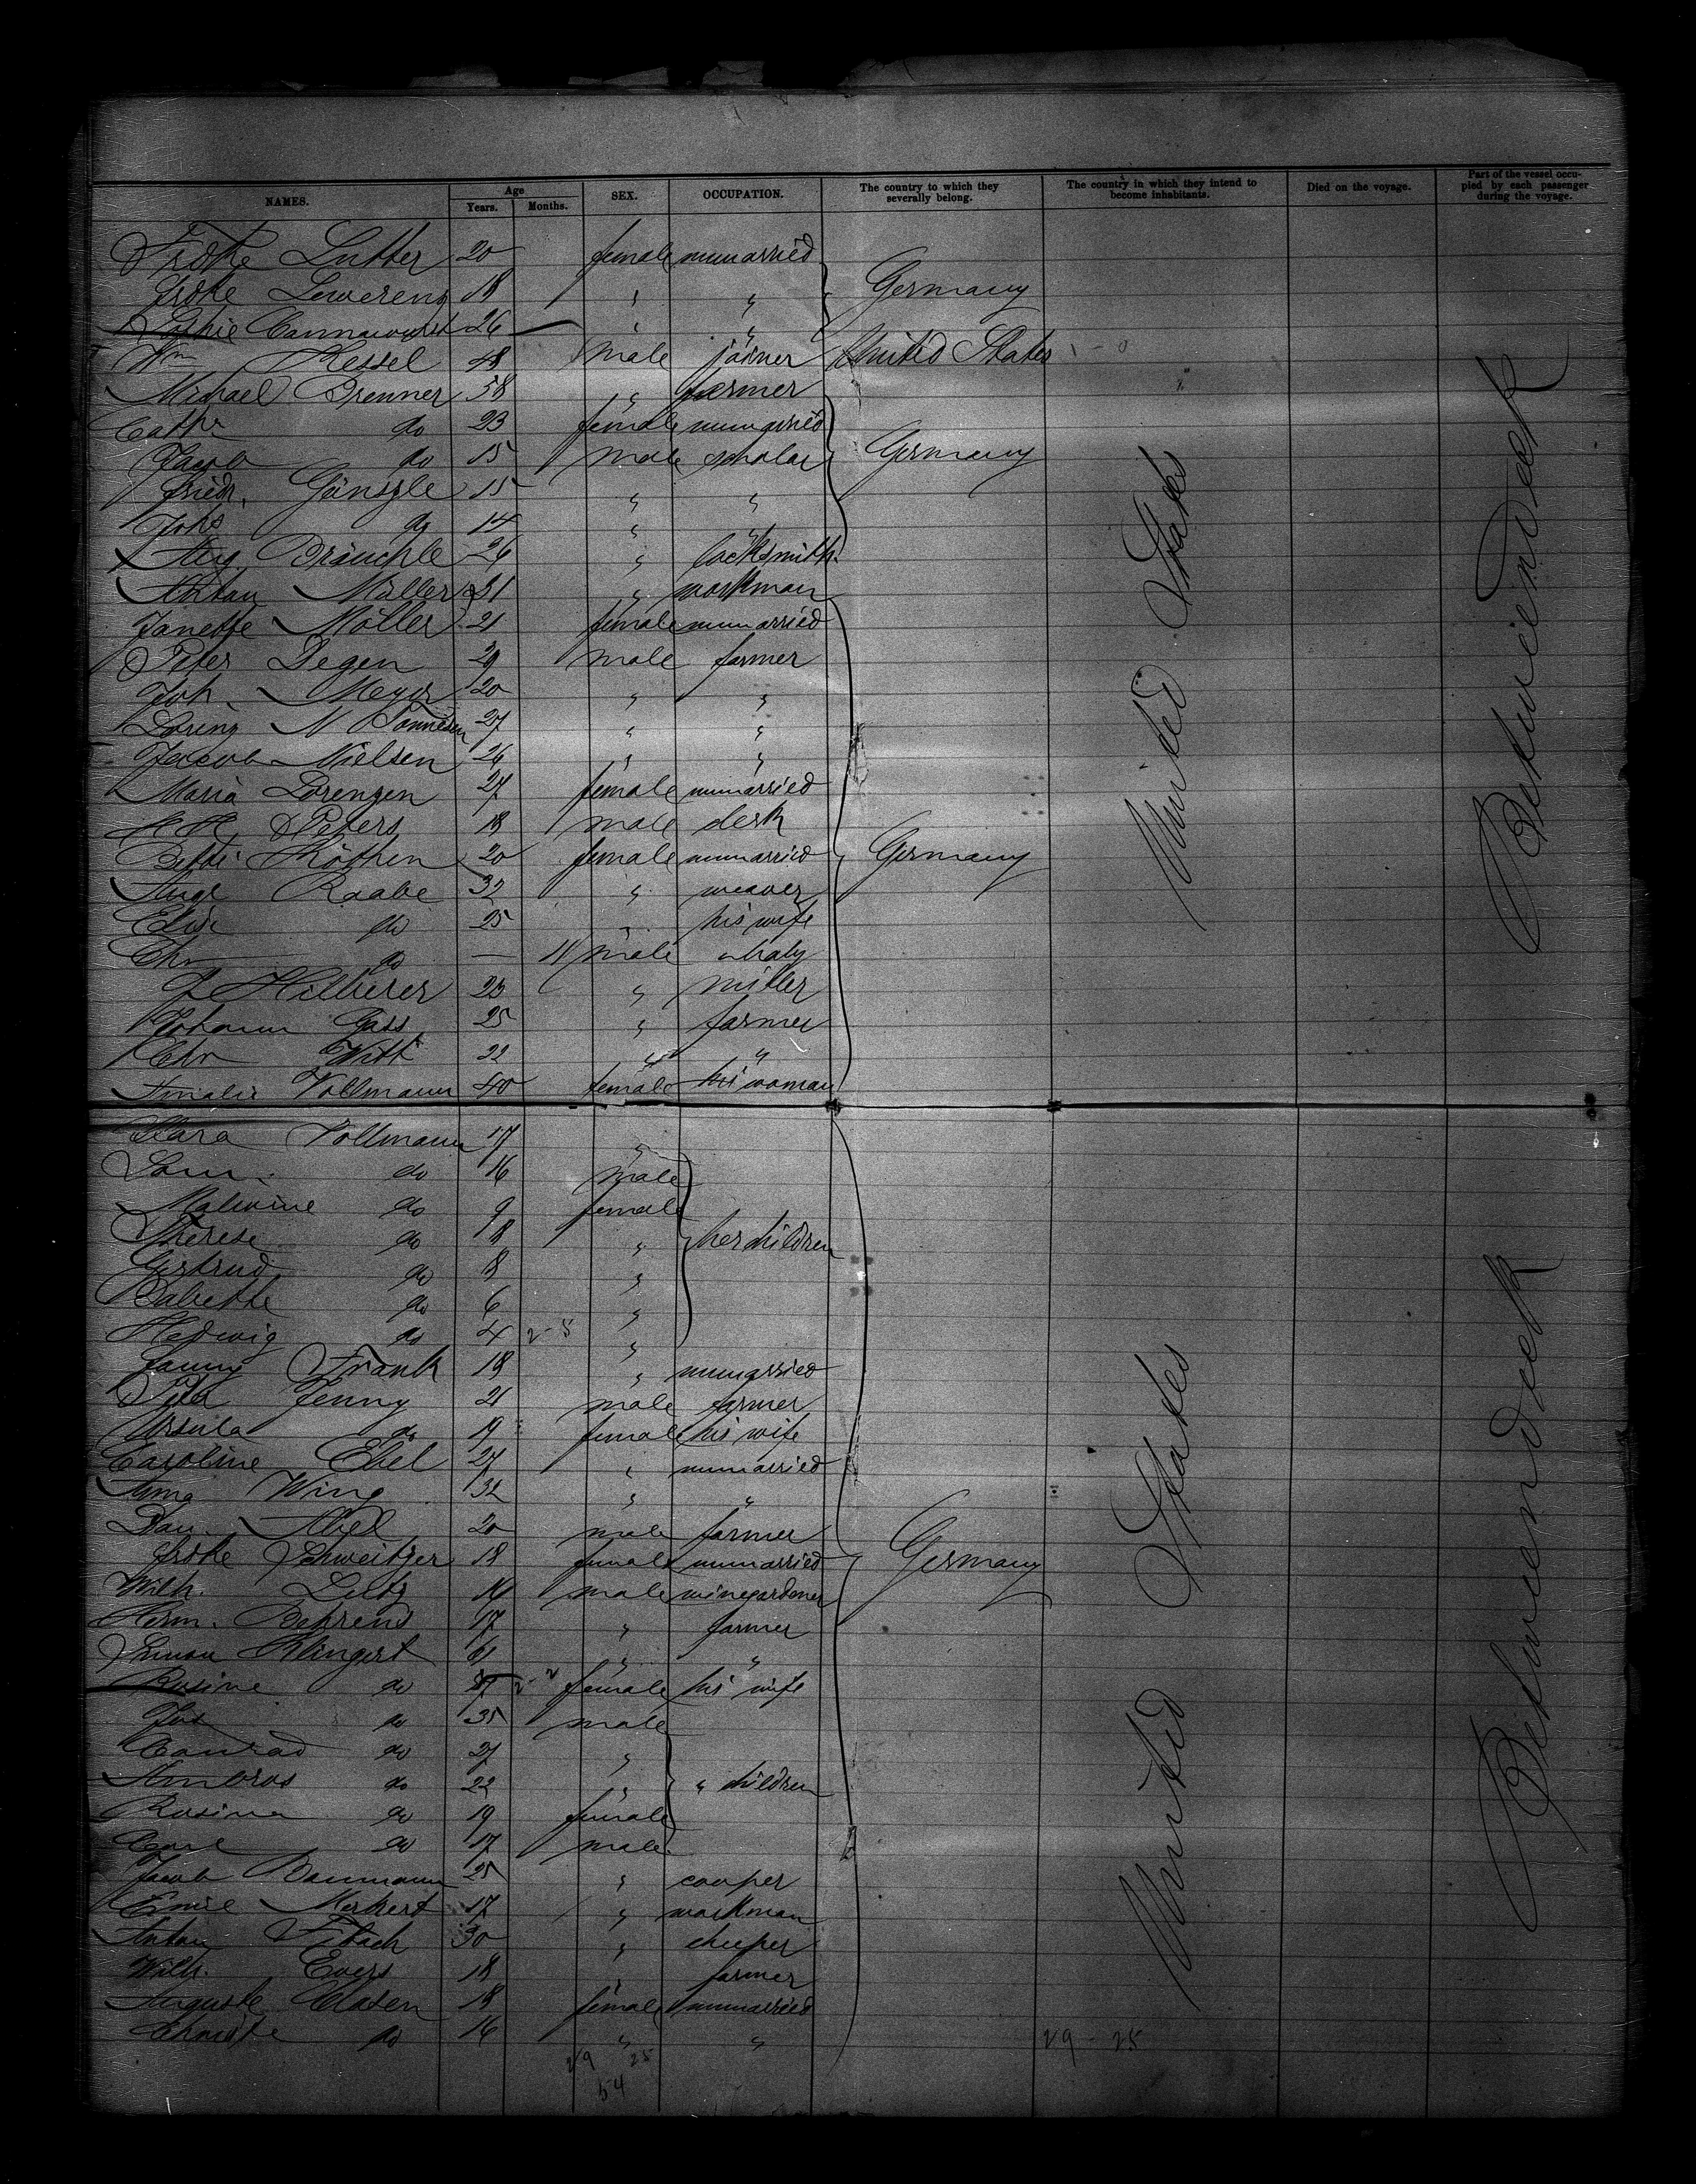 NAMES. Age Years. Months. SEX. OCCUPATION. The country to which they severally belong. The country in which they intend to become inhabitants. Died on the voyage. Part of the vessel occupied by each passenger during the voyage.
Lutter 20 female unmarried
18 " " Germany
26 " "
Wm Kessel 48 male joiner United States
Michael Brenner 58 " farmer
Cathr do 23 female unmarried
Jacob do 15 male scholar Germany
Friedr. 15 " "
Johs do 14 " "
Aug. Bräuchle 26 " locksmith
Anton Müller 31 " workman
Janette Möller 21 female unmarried
Peter Degen 29 male farmer
Joh. Meyer 20 " "
Lorenz N Tönnesen 27 " "
Jacob Nielsen 26 " "
Maria Lorenzen 27 female unmarried
H. H. Peters 18 male clerk
Köthen 20 female unmarried Germany
Raabe 32 " weaver
Elise do 25 " his wife
Chr do — 11 male baby
Hilberer 23 " miller
Johann Gass 25 " farmer
Chr Witt 22 " "
Amalie Vollmann 40 female his woman
United States
Betweendeck
Clara Vollmann 17 "
do 16 male
Malwine do 9 female
Therese do 8 " her children
Gertrud do 8 "
Babette do 6 "
Hedwig do 4 "
Fanny Frank 18 " unmarried
Peter Jenny 21 male farmer
Ursula do 19 female his wife
Caroline Ebel 27 " unmarried
Anna Wing 32 " "
Dan. Abel 20 male farmer
Schweitzer 18 female unmarried Germany
Wilh. Lutz male winegardener
Herm. Behrens 17 " farmer
Simon Klingert 61 " "
Rosine do 57 female his wife
Jos do 35 male
Conrad do 27 "
Ambros do 22 " " children
Rosina do 19 female
Carl do 17 male
Jacob Baumann 25 " cooper
Emil Merkert 17 " workman
Anton 30 "
Wilh. Evers 18 " farmer
Auguste Clasen 18 female unmarried
do 16 " "
29 25
29 - 25
54
United States
Betweendeck